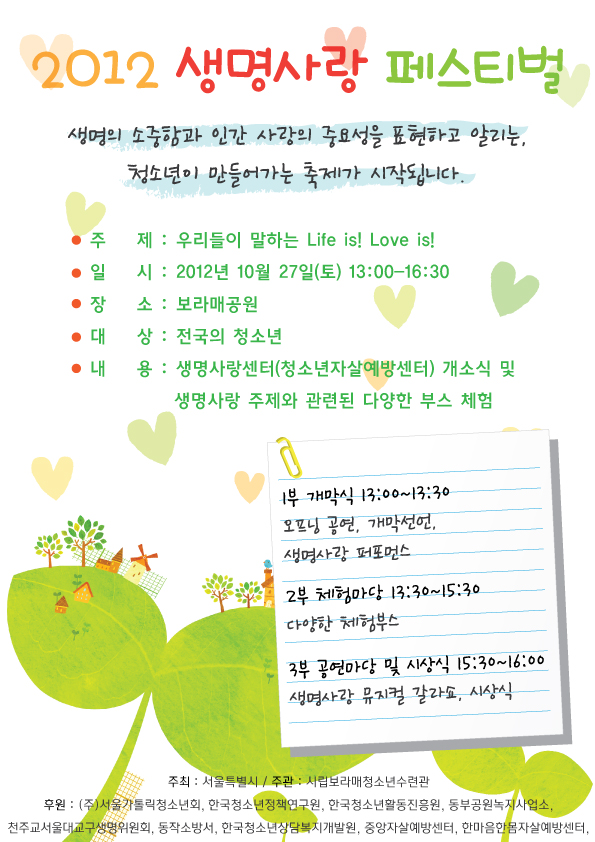 2012 생명사랑 페스티벌
생명의 소중함과 인간 사랑의 중요성을 표현하고 알리는,
청소년이 만들어가는 축제가 시작됩니다.
● 주 제 : 우리들이 말하는 Life is! Love is!
● 일 시 : 2012년 10월 27일(토) 13:00-16:30
● 장 소 : 보라매공원
● 대 상 : 전국의 청소년
● 내 용 : 생명사랑센터(청소년자살예방센터) 개소식 및
생명사랑 주제와 관련된 다양한 부스 체험
1부 개막식 13:00~13:30
오프닝 공연, 개막선언,
생명사랑 퍼포먼스
2부 체험마당 13:30~15:30
다양한 체험부스
3부 공연마당 및 시상식 15:30~16:00
생명사랑 뮤지컬 갈라쇼, 시상식
주최 : 서울특별시 / 주관 : 시립보라매청소년수련관
후원 : (주)서울가톨릭청소년회, 한국청소년정책연구원, 한국청소년활동진흥원, 동부공원녹지사업소,
천주교서울대교구생명위원회, 동작소방서, 한국청소년상담복지개발원, 중앙자살예방센터, 한마음한몸자살예방센터,